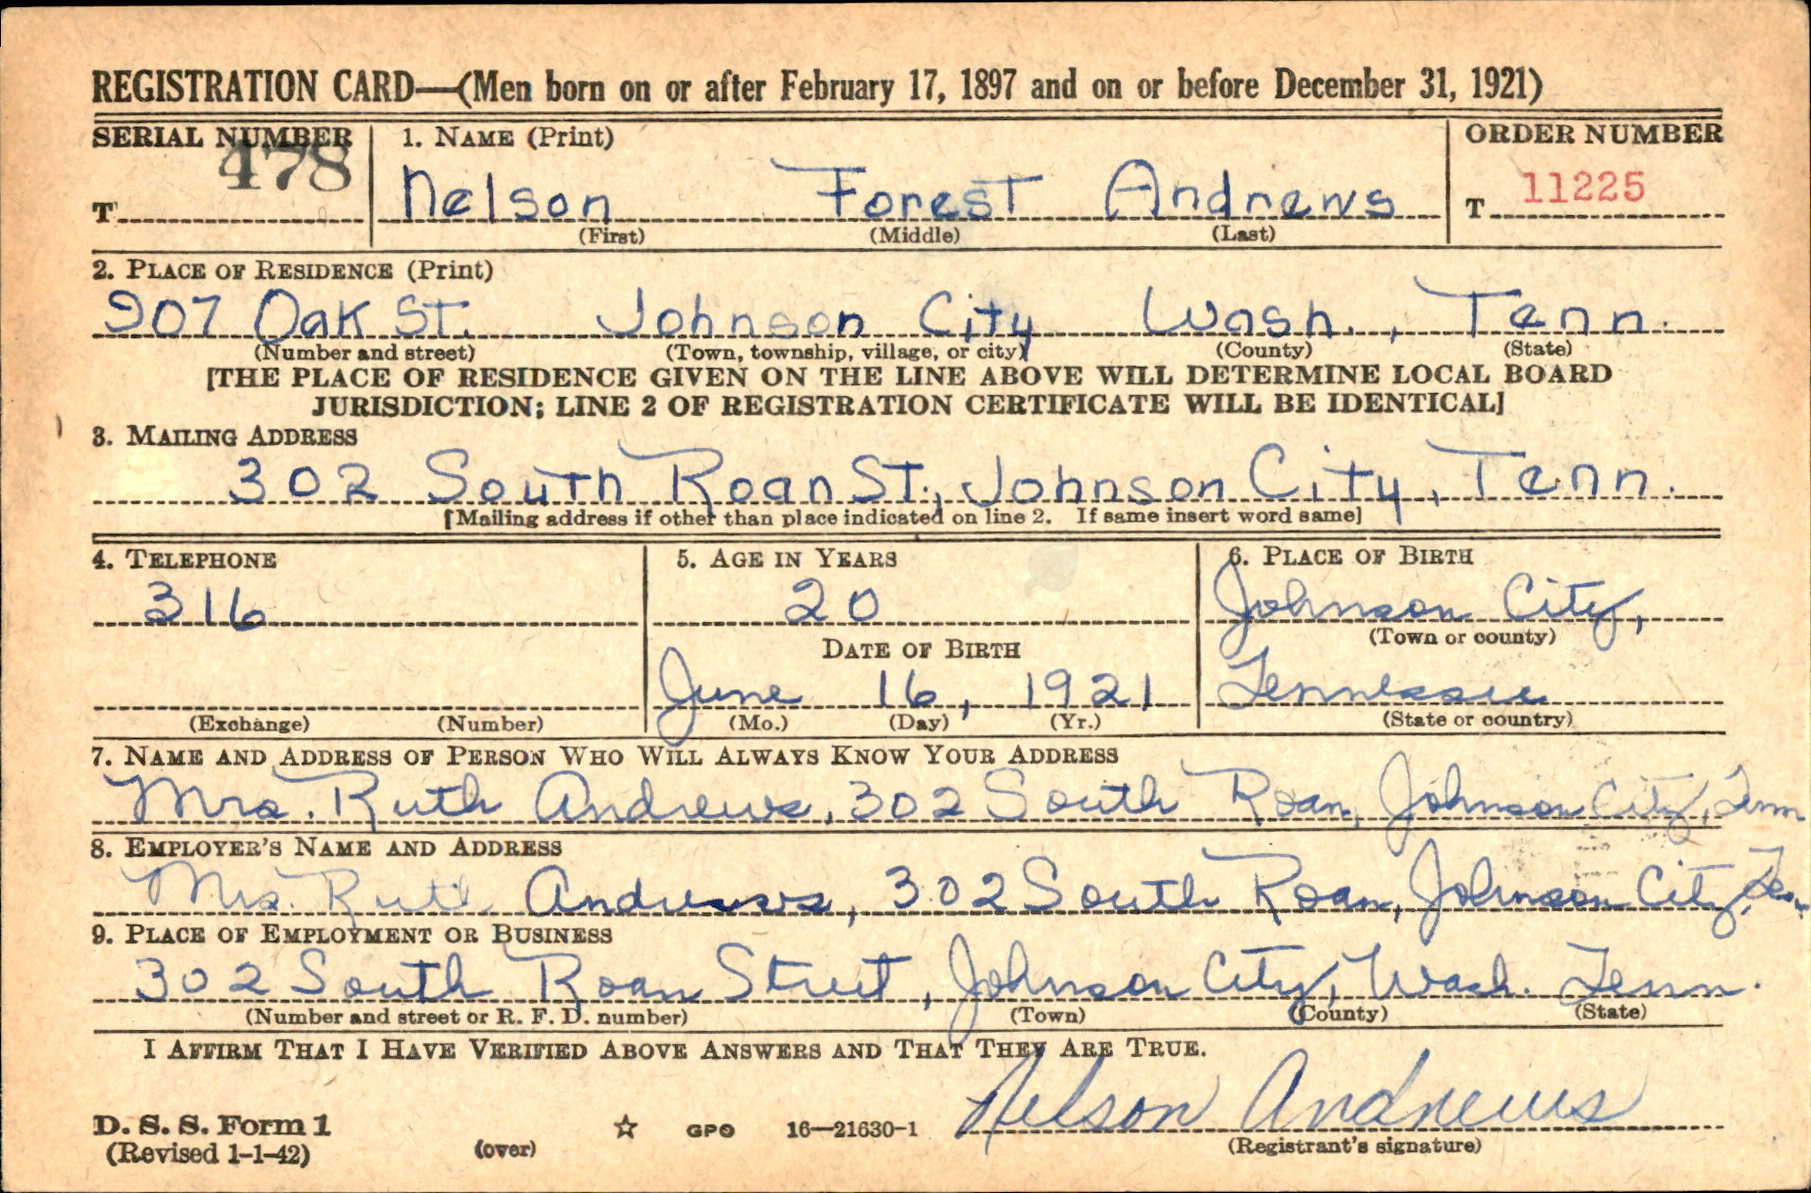 REGISTRATION CARD—(Men born on or after February 17, 1897 and on or before December 31, 1921)
SERIAL NUMBER 1. NAME (Print) ORDER NUMBER
T 478 Nelson Forest Andrews T 11225
(First) (Middle) (Last)
2. PLACE OF RESIDENCE (Print)
907 Oak St. Johnson City Wash., Tenn.
(Number and street) (Town, township, village, or city) (County) (State)
[THE PLACE OF RESIDENCE GIVEN ON THE LINE ABOVE WILL DETERMINE LOCAL BOARD
JURISDICTION; LINE 2 OF REGISTRATION CERTIFICATE WILL BE IDENTICAL]
3. MAILING ADDRESS
302 South Roan St., Johnson City, Tenn.
[Mailing address if other than place indicated on line 2. If same insert word same]
4. TELEPHONE 5. AGE IN YEARS 6. PLACE OF BIRTH
316 20 Johnson City,
DATE OF BIRTH (Town or county)
June 16, 1921 Tennessee
(Exchange) (Number) (Mo.) (Day) (Yr.) (State or country)
7. NAME AND ADDRESS OF PERSON WHO WILL ALWAYS KNOW YOUR ADDRESS
Mrs. Ruth Andrews, 302 South Roan, Johnson City, Tenn
8. EMPLOYER'S NAME AND ADDRESS
Mrs. Ruth Andrews, 302 South Roan, Johnson City, Tenn.
9. PLACE OF EMPLOYMENT OR BUSINESS
302 South Roan Street, Johnson City, Wash. Tenn.
(Number and street or R. F. D. number) (Town) (County) (State)
I AFFIRM THAT I HAVE VERIFIED ABOVE ANSWERS AND THAT THEY ARE TRUE.
Nelson Andrews
D. S. S. Form 1
(Revised 1-1-42) (over) ☆ GPO 16—21630-1 (Registrant's signature)